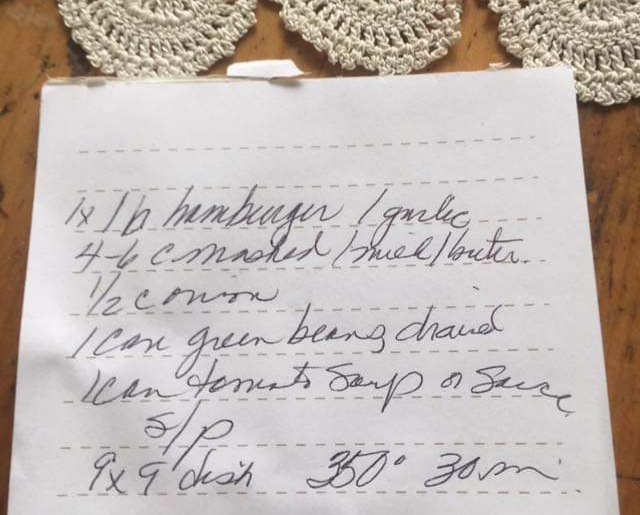 1x 1 lb hamburger / garlic
4-6 c mashed / milk / butter.
1/2 c onion
1 can green beans drained
1 can tomato soup or sauce
s/p
9x9 dish 350° 30 min